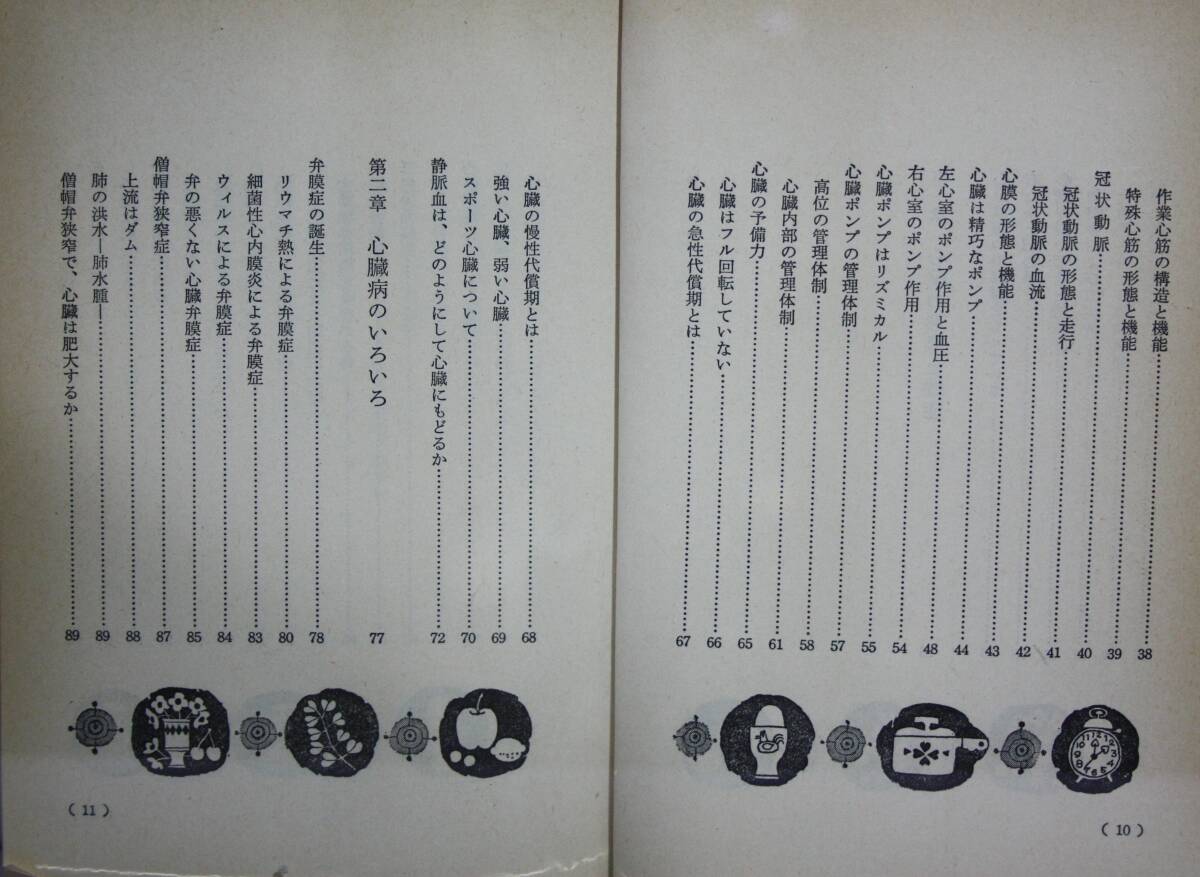 作業心筋の構造と機能……………38
特殊心筋の形態と機能……………39
冠状動脈……………40
冠状動脈の形態と走行……………41
冠状動脈の血流……………42
心膜の形態と機能……………43
心臓は精巧なポンプ……………44
左心室のポンプ作用と血圧……………48
右心室のポンプ作用……………54
心臓ポンプはリズミカル……………55
心臓ポンプの管理体制……………57
高位の管理体制……………58
心臓内部の管理体制……………61
心臓の予備力……………65
心臓はフル回転していない……………66
心臓の急性代償期とは……………67
12 1 2 3 4 5 6 7 8 9 10 11
(10)
心臓の慢性代償期とは……………68
強い心臓、弱い心臓……………69
スポーツ心臓について……………70
静脈血は、どのようにして心臓にもどるか……………72
第二章 心臓病のいろいろ……………77
弁膜症の誕生……………78
リウマチ熱による弁膜症……………80
細菌性心内膜炎による弁膜症……………83
ウィルスによる弁膜症……………84
弁の悪くない心臓弁膜症……………85
僧帽弁狭窄症……………87
上流はダム……………88
肺の洪水—肺水腫—……………89
僧帽弁狭窄で、心臓は肥大するか……………89
(11)